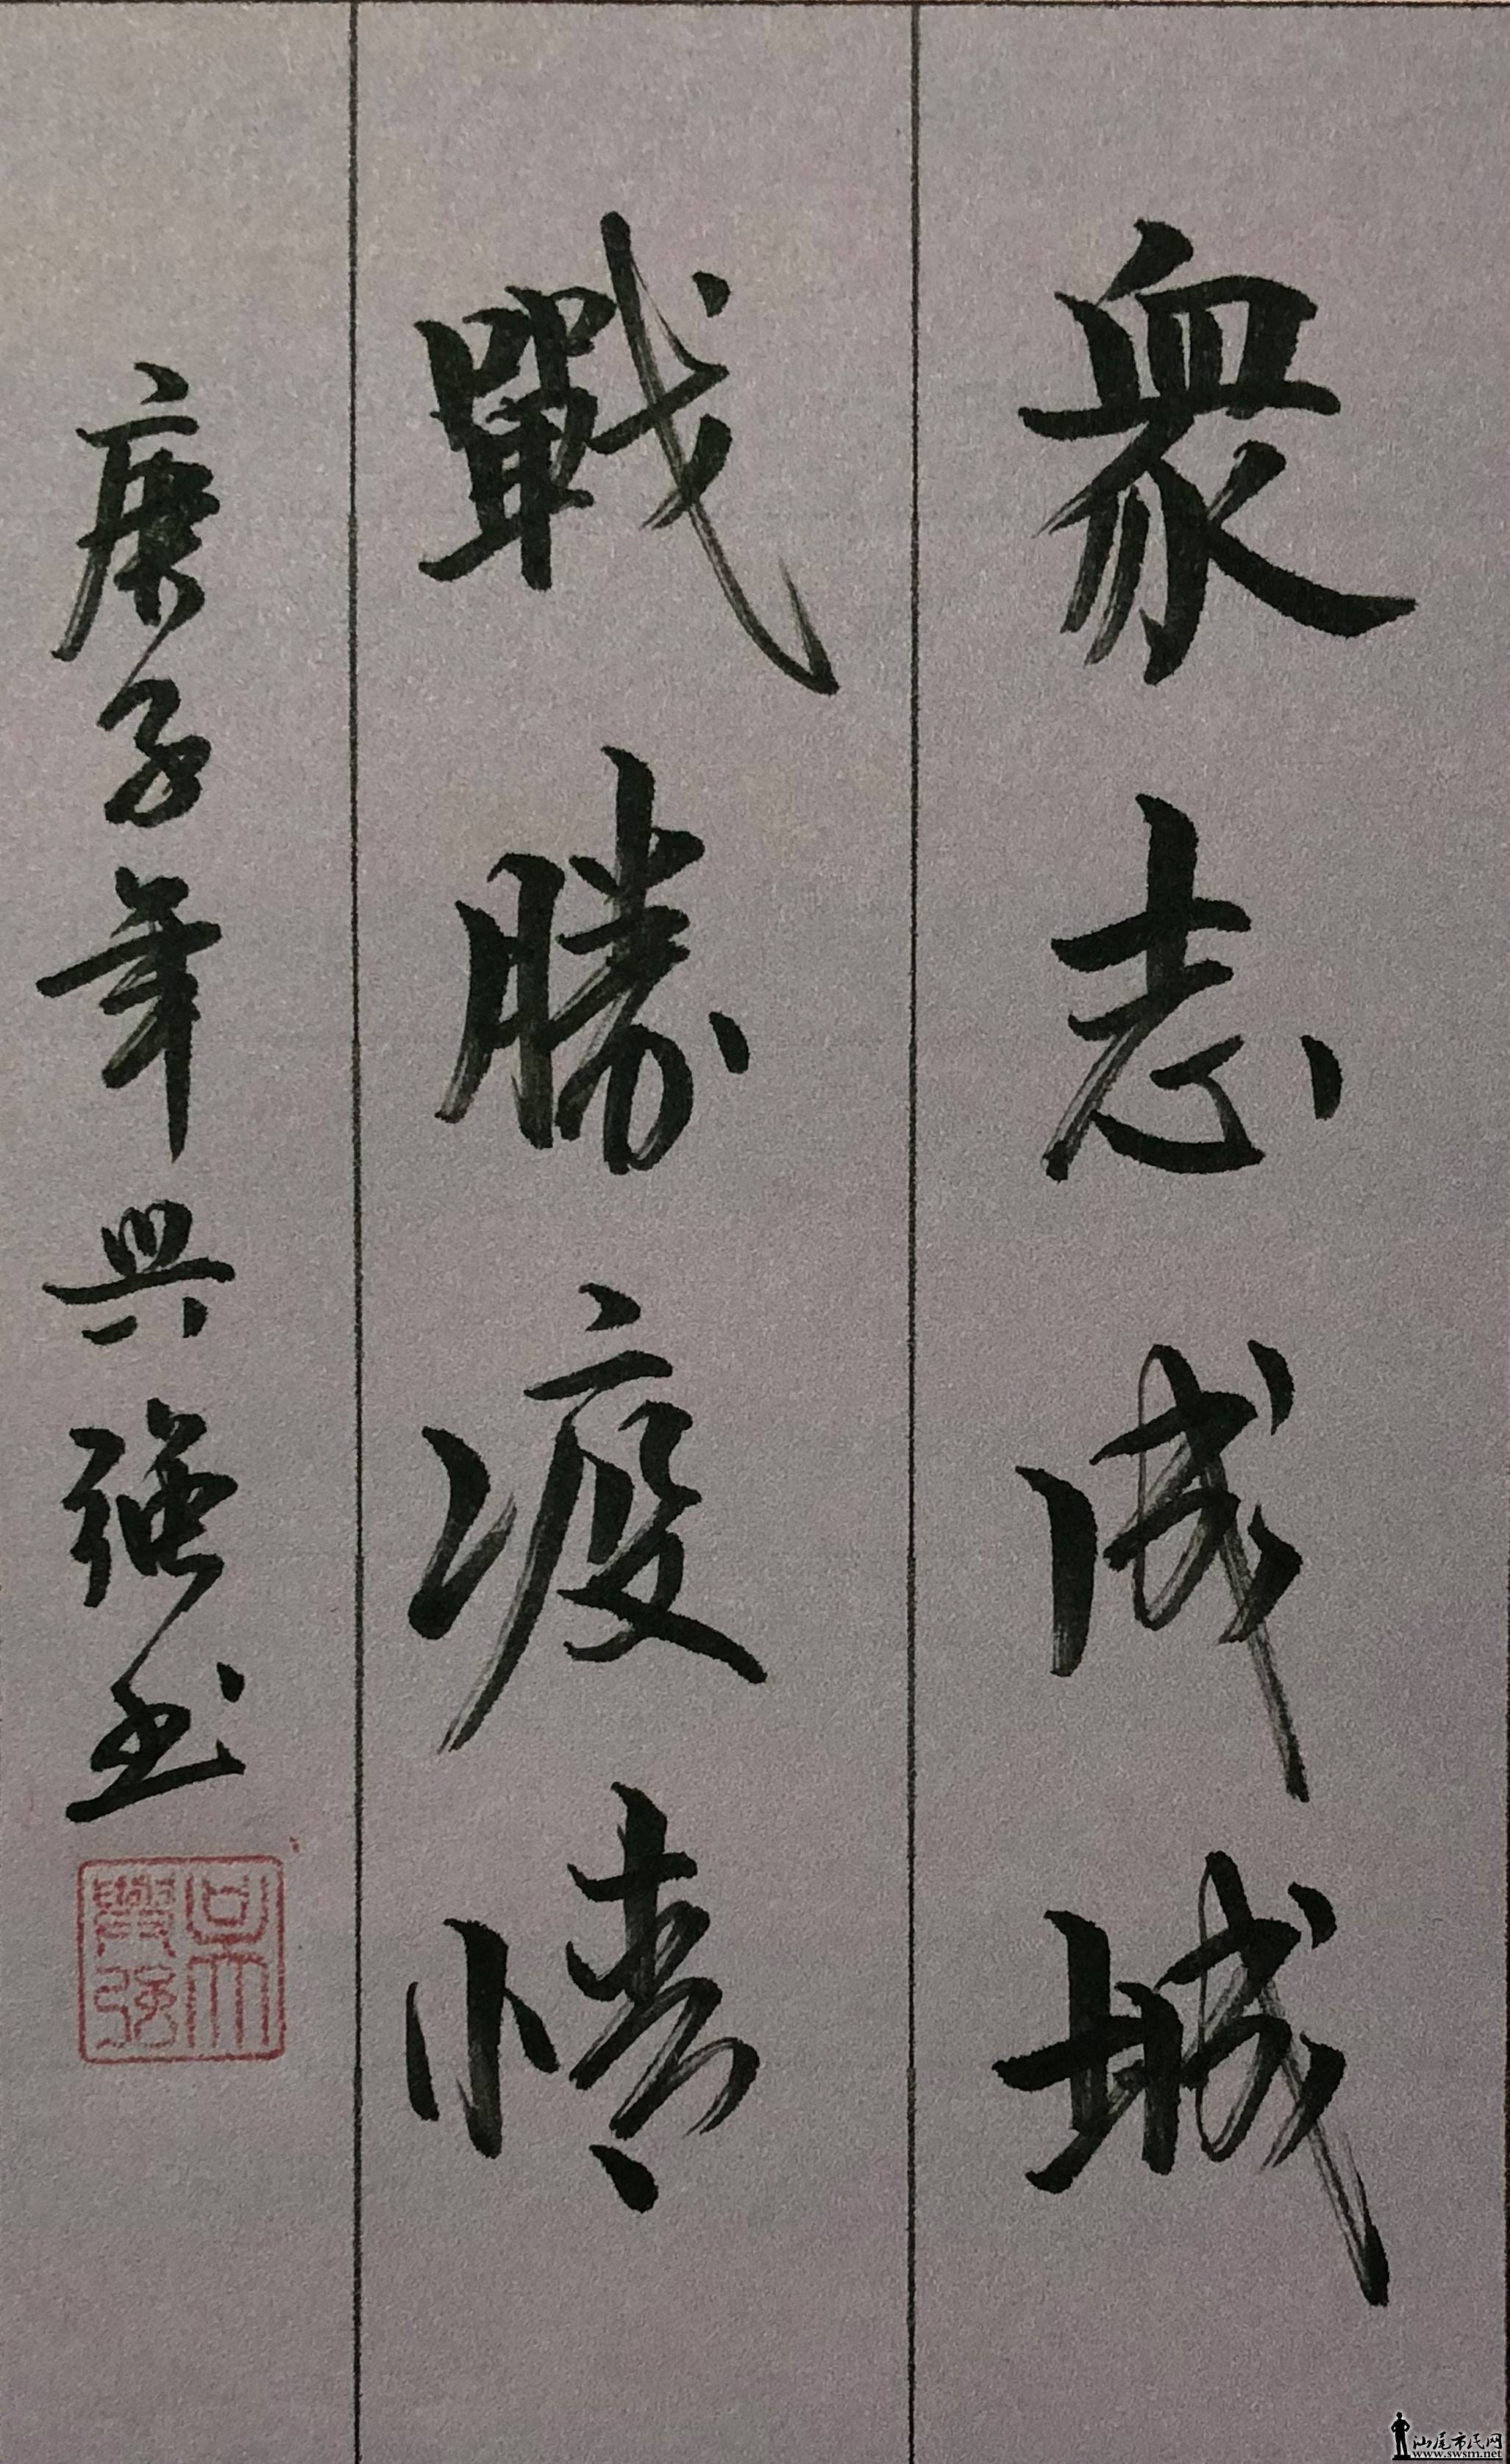 眾志成城
戰勝疫情
庚子年興強书
吴興强
汕尾市民网
www.swsm.net